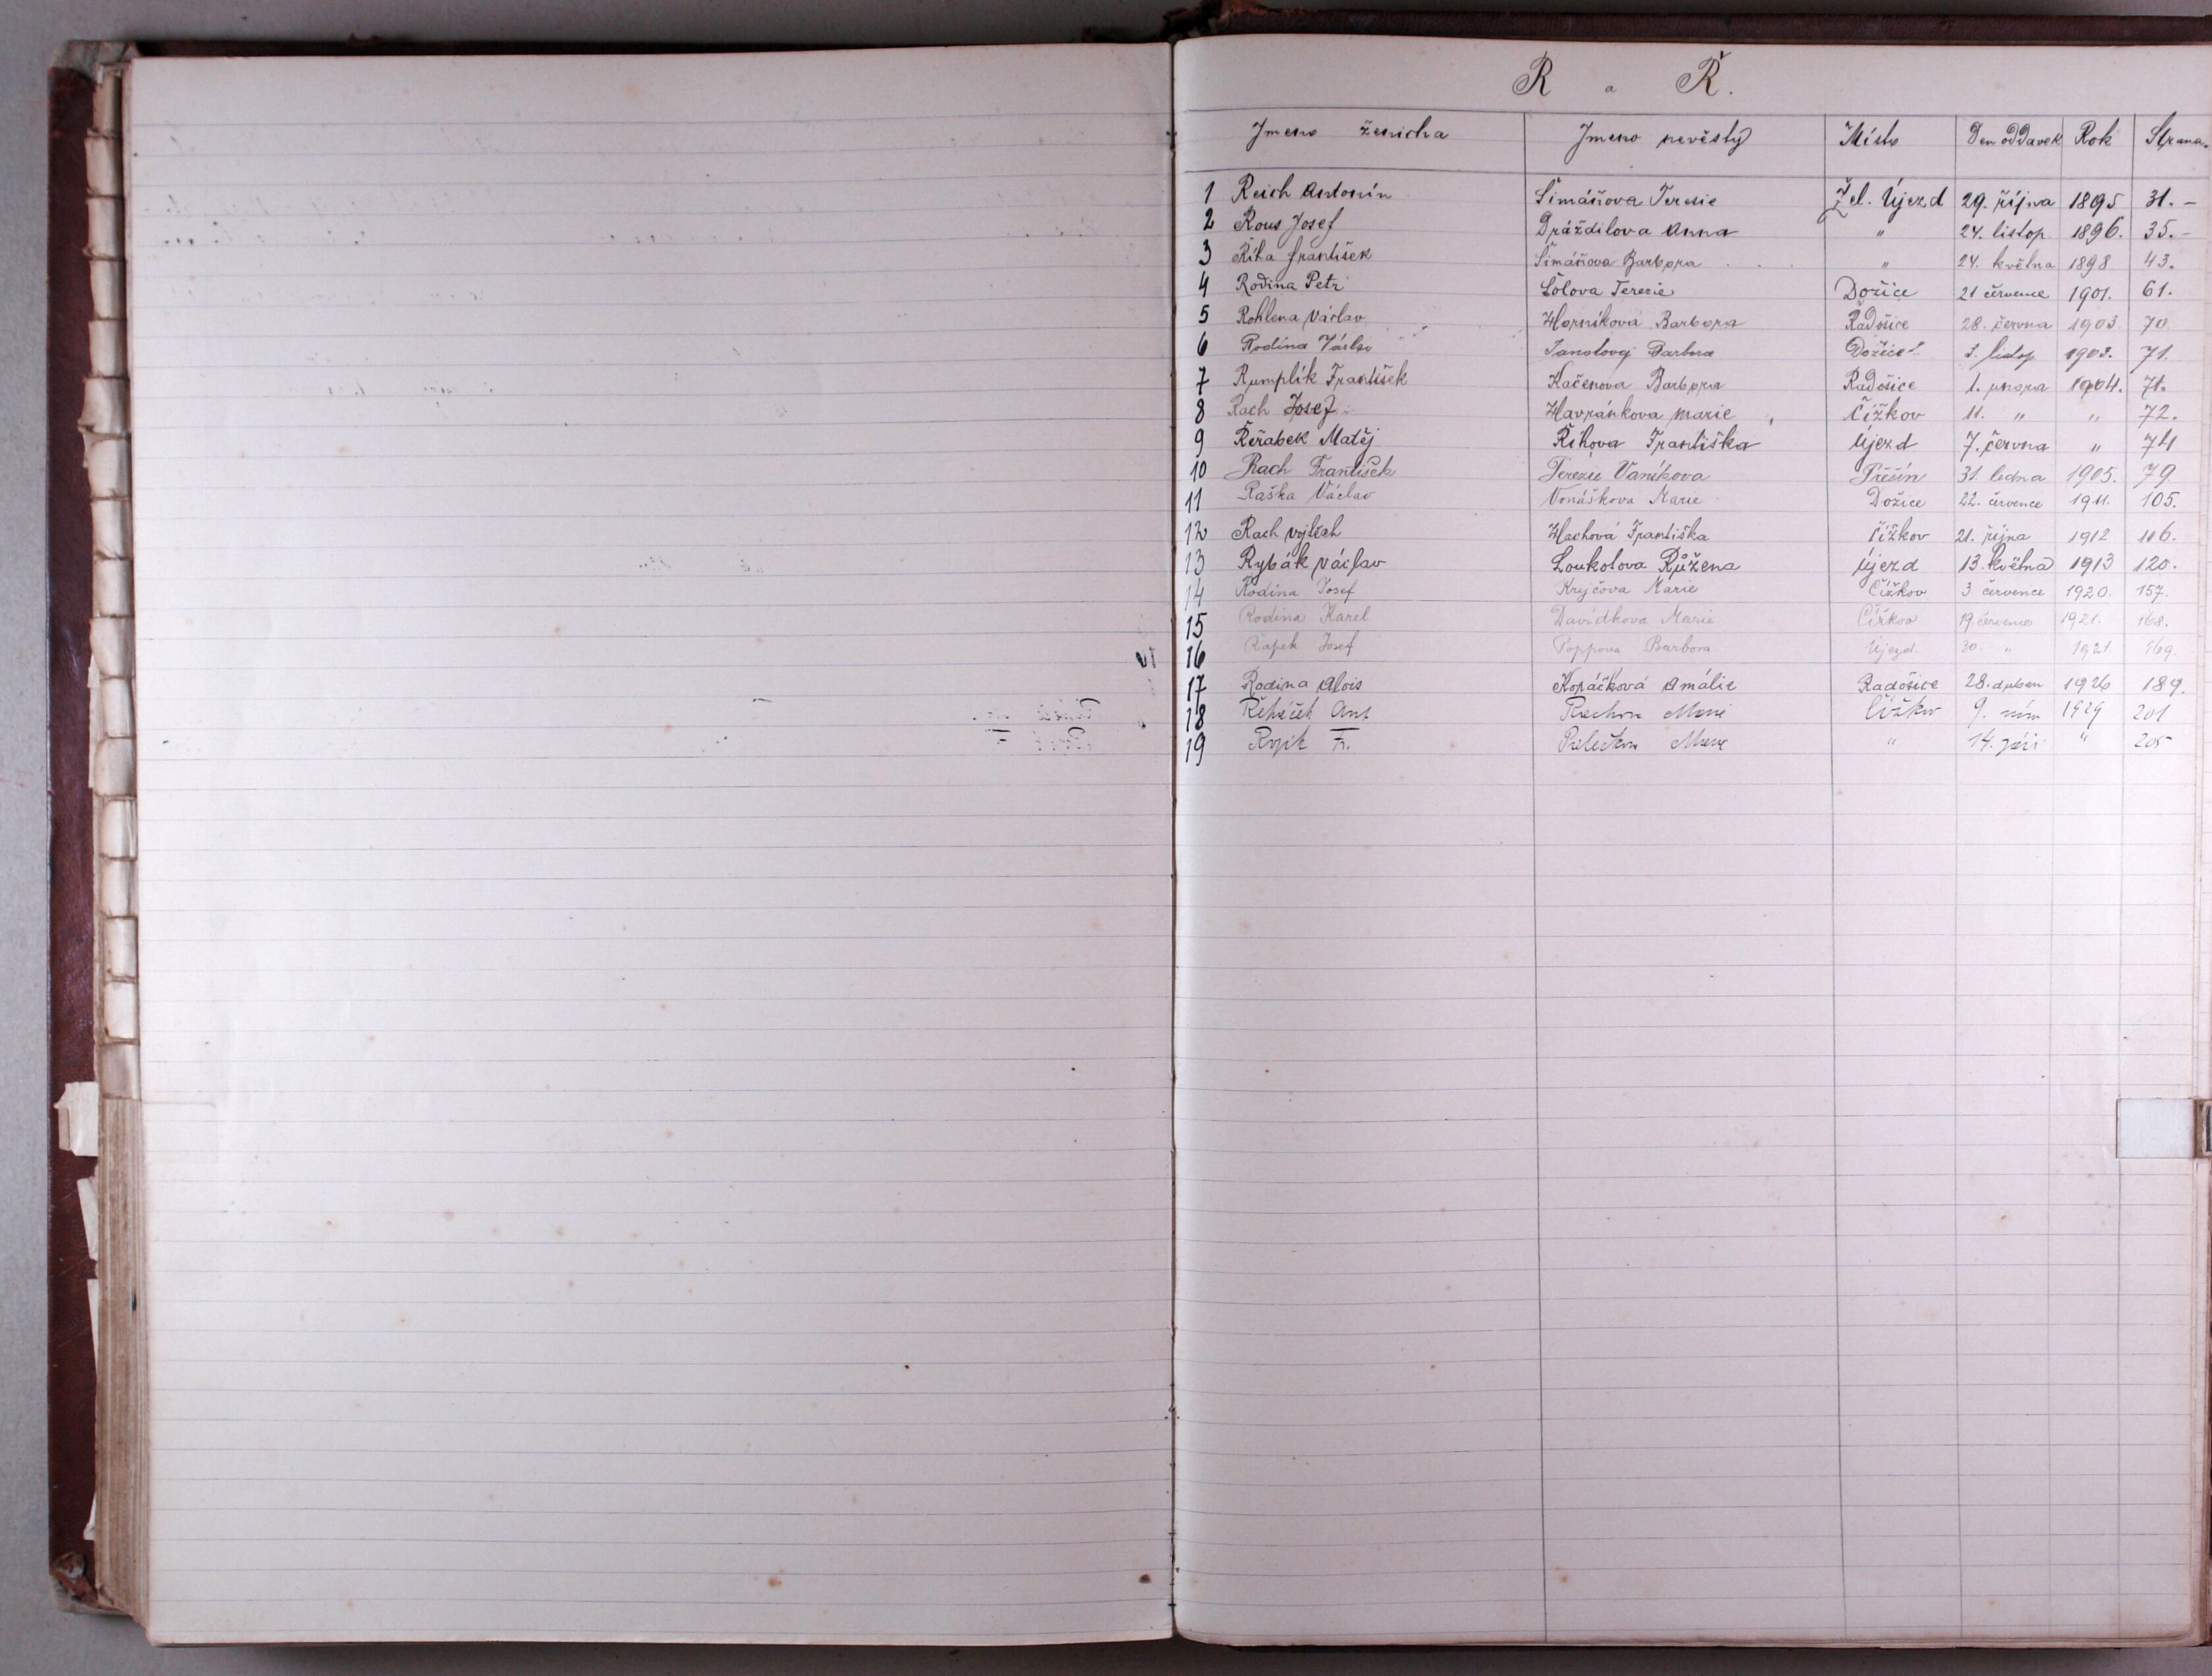 R a Ř.
Jmeno ženicha Jmeno nevěsty Místo Den oddavek Rok Strana.
1 Reich Antonín Šimáňova Teresie Žel. Újezd 29. října 1895 31. –
2 Rous Josef Dráždilova Anna " 24. listop. 1896. 35. –
3 Říha František Šimáňova Barbora " 24. května 1898 43.
4 Rodina Petr Šólova Terezie Dožice 21 července 1901. 61.
5 Rohlena Václav Horníkova Barbora Radošice 28. června 1903. 70
6 Rodina Václav Barbora Dožice 3. listop. 1903. 71.
7 Rumplík František Kačenova Barbora Radošice 1. unora 1904. 71.
8 Rach Josef Havránkova Marie Čížkov 11. " " 72.
9 Řeřabek Matěj Říhova Františka Újezd 7. června " 74
10 Rach František Terezie Vaníkova Přešín 31. ledna 1905. 79
11 Raška Václav Vonáškova Marie Dožice 22. července 1911. 105.
12 Rach Vojtěch Hachová Františka Čížkov 21. října 1912 116.
13 Rybák Václav Loukotova Růžena Újezd 13. května 1913 120.
14 Rodina Josef Krejčova Marie Čížkov 3 července 1920. 157.
15 Rodina Karel Davídkova Marie Čížkov 19 července 1921. 168.
16 Řapek Josef Poppova Barbora Újezd. 30. " 1921 169.
17 Rodina Alois Koráčková Amálie Radošice 28. duben 1926 189.
18 Řeháček Ant Marie Čížkov 9. 1929 201
19 Fr. Marie " 14. září " 205